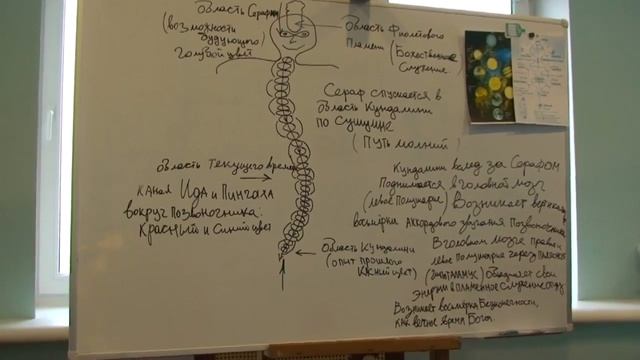 область Серафим
(возможности
будующего)
голубой цвет
область Фиолетового
Пламени (Божественное
Служение)
Сераф спускается в
область Кундалини
по Сушумне
(путь молний)
область текущего времени
канал Ида и Пингала
вокруг позвоночника:
Красный и Синий цвет
область Кундалини
(опыт прошлого
Красный цвет)
Кундалини вслед за Серафом
Поднимается в головной мозг
(левое полушарие) Возникает
восьмёрки Аккордового звучания Позвоночника
В головном мозге правое и
левое полушарие через
(гипоталамус) свои
энергии в пламенное служение
Возникает восьмёрка Бесконечности,
как вечное время Бога.